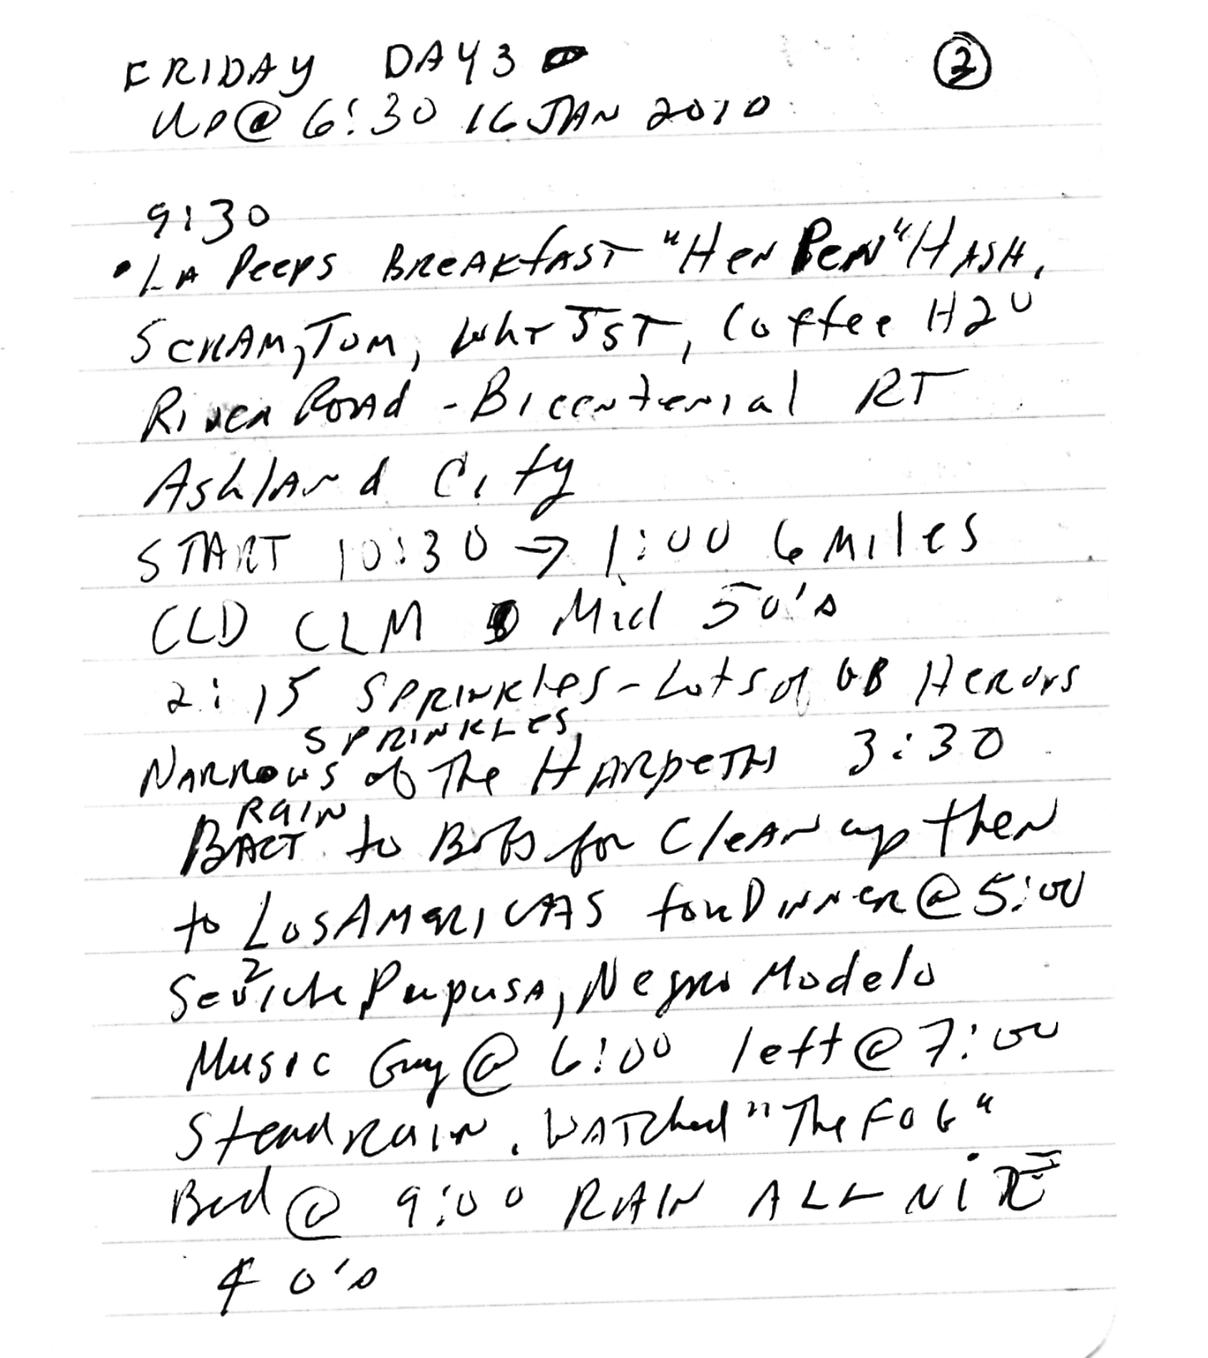 FRIDAY DAY 3
②
UP @ 6:30 16 JAN 2010
9:30
• LA Peeps BREAKfAST "Hen Pen" HASH,
SCRAM, TOM, Wht TST, Coffee H2O
River Road - Bicentenial RT
Ashland City
START 10:30 → 1:00 6 Miles
CLD CLM Mid 50's
2:15 SPRINkles - Lots of GB Herons
SPRINKLES
NARROWS of The HARpeTH 3:30
RAIN
BACT to Bobs for Clean up then
to Los AMERICAS for DINNER @ 5:00
Seviche 2 Pupusa, Negro Modelo
Music Guy @ 6:00 left @ 7:00
Stead RAIN. WATChed "The FOG"
Bed @ 9:00 RAIN ALL NiTE
40's